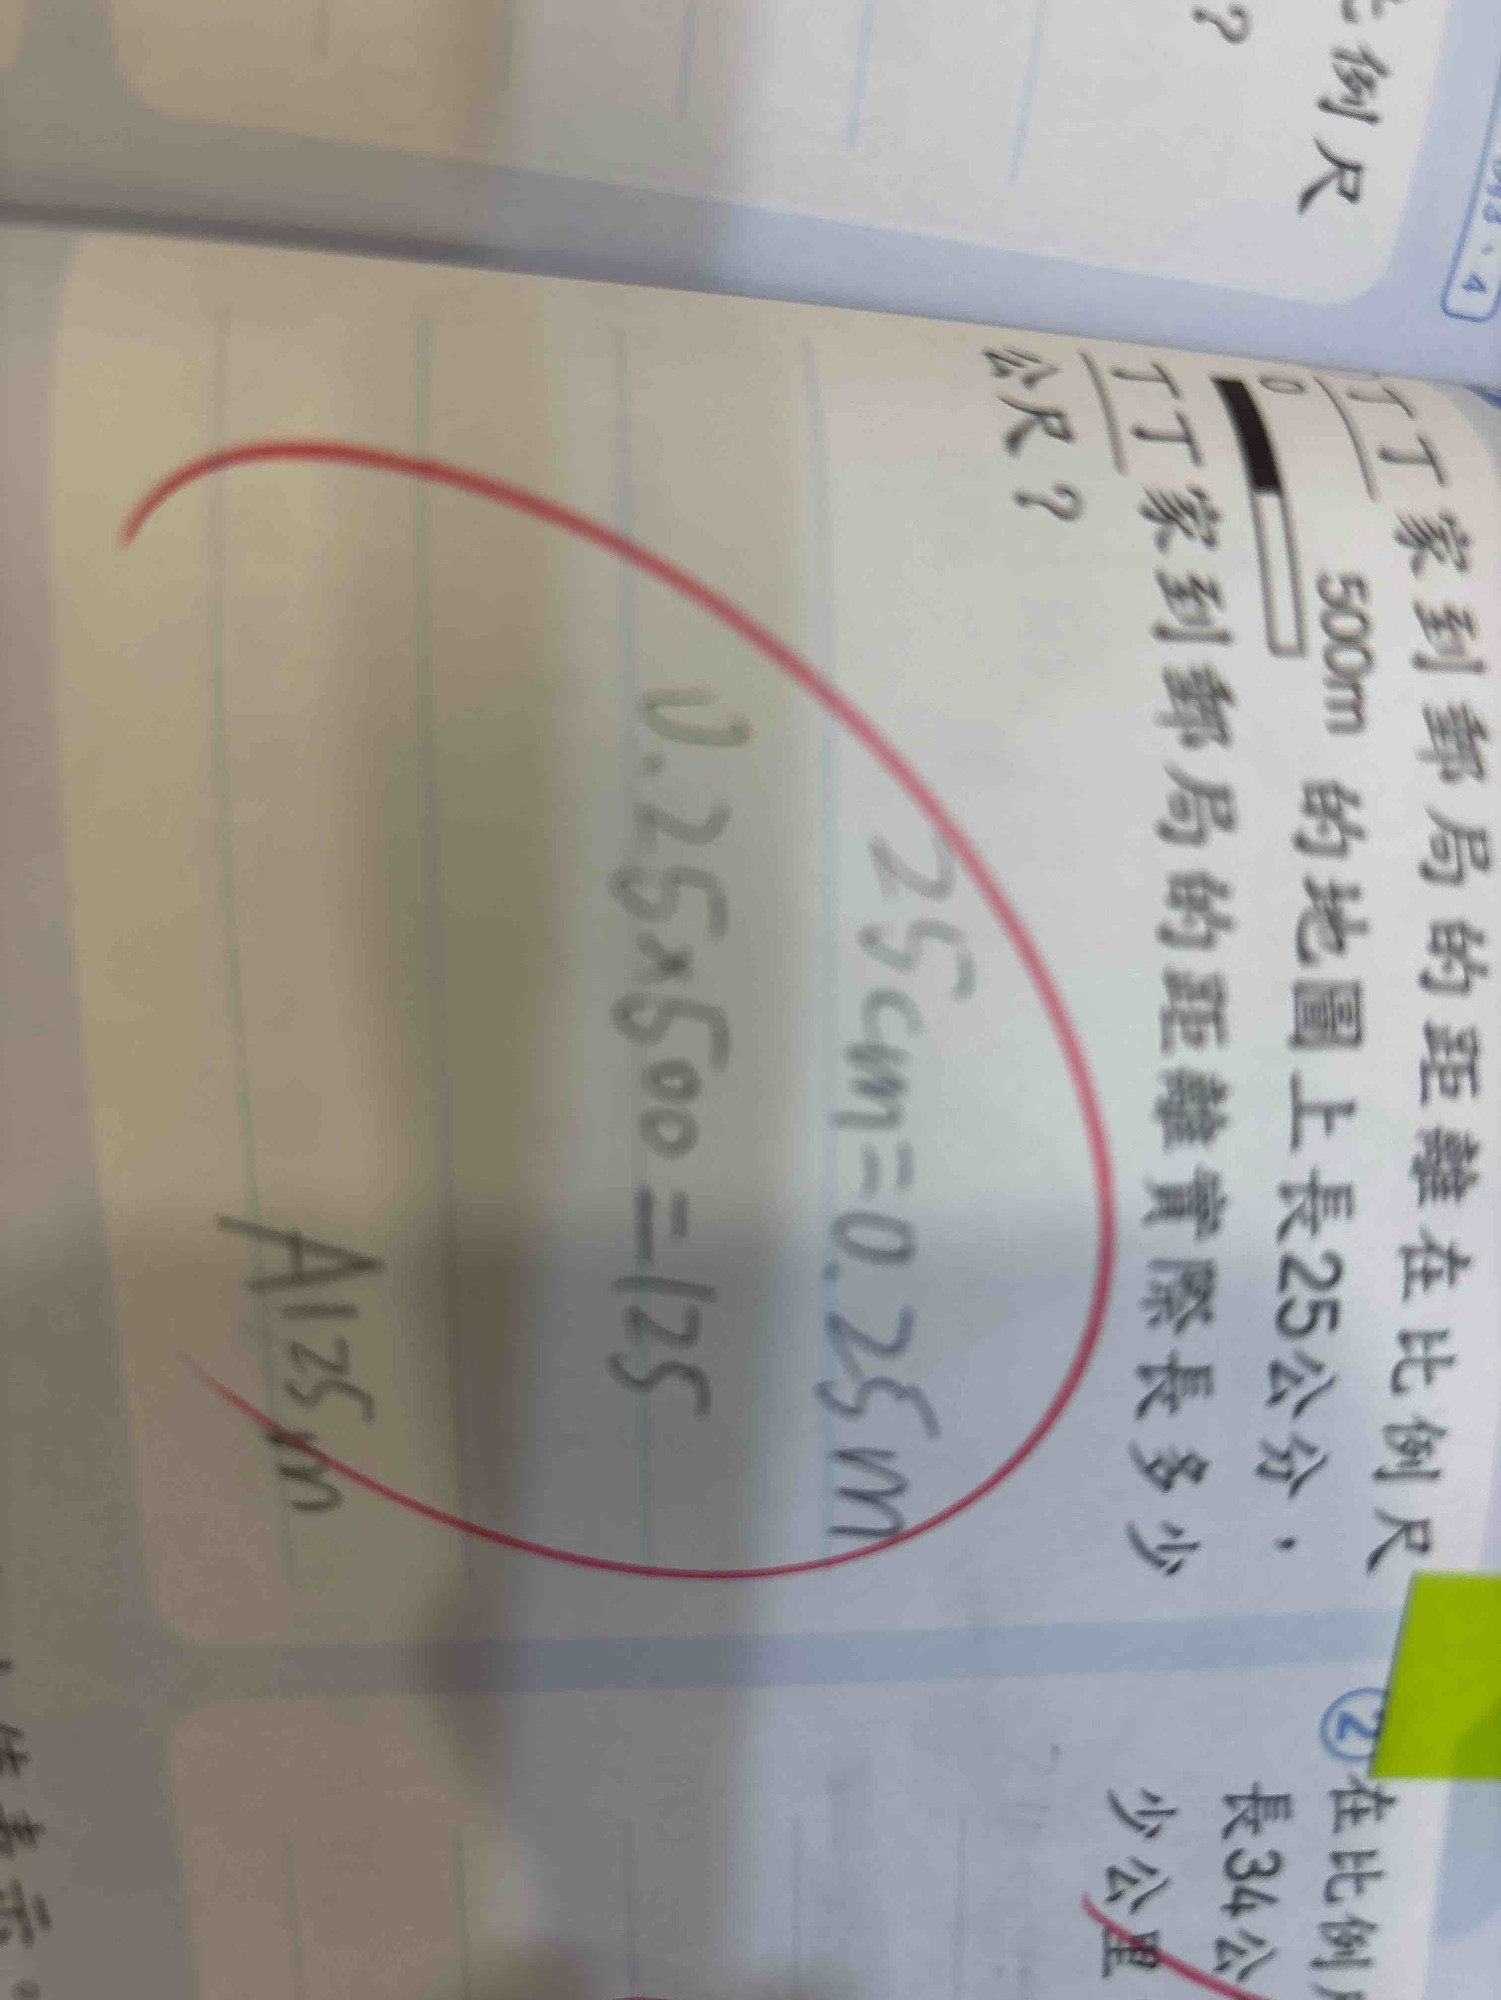 比例尺
?
4
丁丁家到郵局的距離在比例尺
0 500m 的地圖上長25公分，
丁丁家到郵局的距離實際長多少
公尺？
25cm=0.25m
0.25×500=125
A125m
②在比例
長34公
少公里
表示。